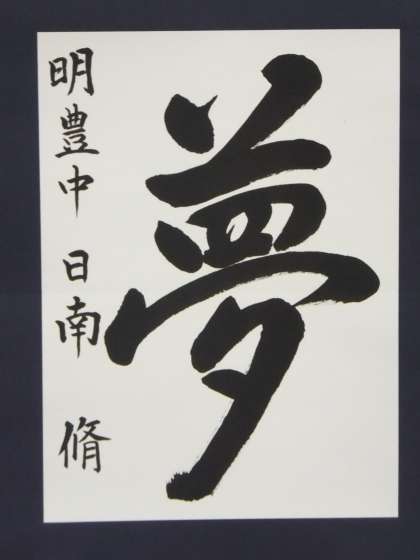 夢
明豊中 日南 脩